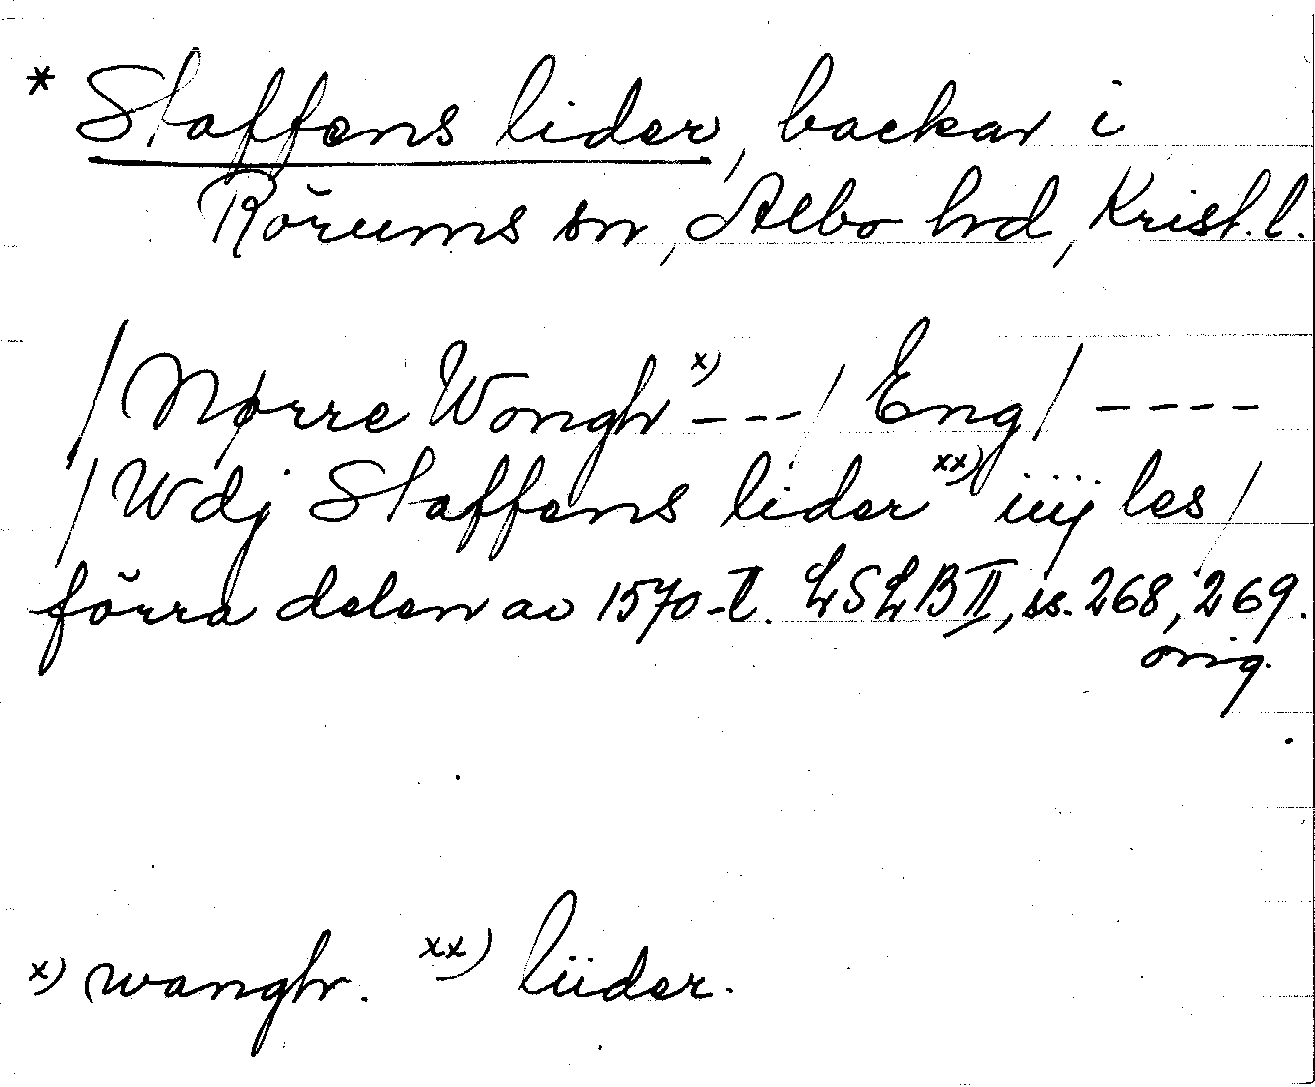 * Staffens lider, backar i
Rörums sn, Albo hd, Krist. l.
/Nørre Wongh x) ---/ Eng/ ----
/Wdj Staffens lider xx) iiij les/
förra delen av 1570-t. LSLB II, ss. 268, 269.
orig.
x) wangh. xx) liider.